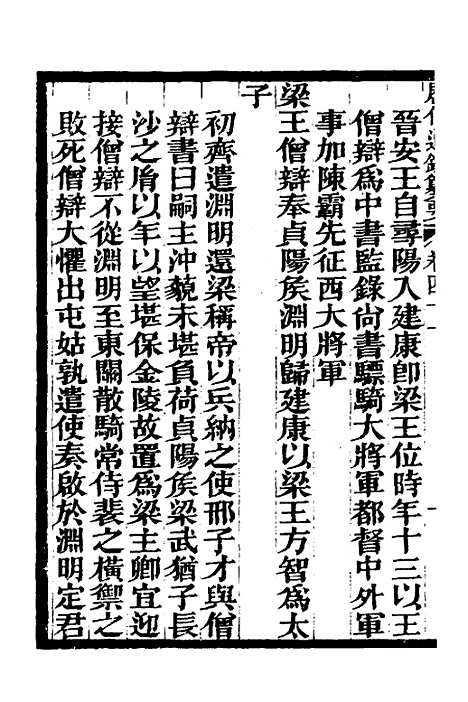 晉安王自尋陽入建康卽梁王位時年十三以王
僧辯爲中書監錄尙書驃騎大將軍都督中外軍
事加陳霸先征西大將軍
梁王僧辯奉貞陽矦淵明歸建康以梁王方智爲太
子
初齊遣淵明還梁稱帝以兵納之使邢子才與僧
辯書曰嗣主沖藐未堪負荷貞陽矦梁武猶子長
沙之胤以年以望堪保金陵故置爲梁主卿宜迎
接僧辯不從淵明至東關散騎常侍裴之橫禦之
敗死僧辯大懼出屯姑孰遣使奏啟於淵明定君